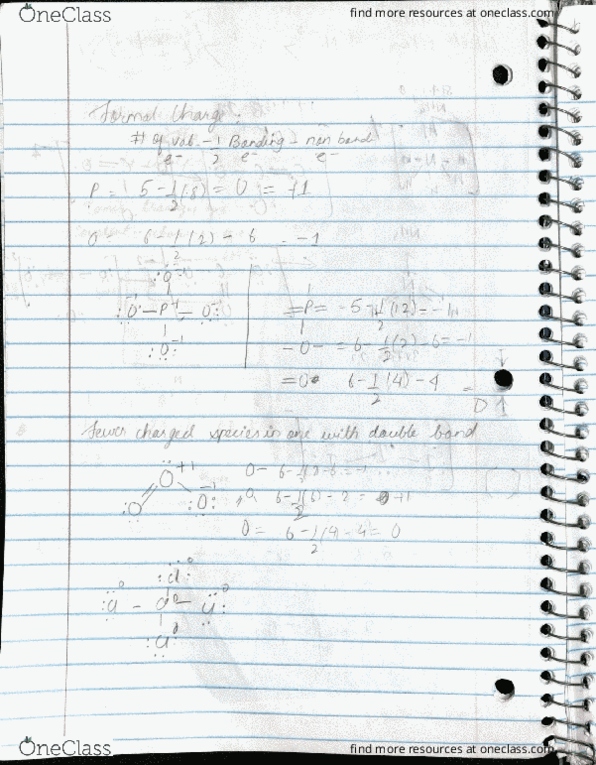 OneClass
find more resources at oneclass.com
Formal Charge:
# of val. - 1/2 Bonding - non bond
e- e- e-
P = 5 - 1/2 (8) = 0 = +1
O 6 - 1/2 (2) - 6 = -1
:O:
:O - P - O:
:O: -1
=P= -5 - 1/2 (12) = -1
-O- = 6 - 1/2 (2) - 6 = -1
=O 6 - 1/2 (4) - 4 =
Fewer charged species in one with double bond
O- 6 - 1/2 6 = -1
O +1 O: -1 O 6 - 1/2 (6) - 2 = +1
O= 6 - 1/2 (4) - 4 = 0
:Cl: 0
:Cl 0 - 0 - Cl: 0
:Cl: 0
OneClass
find more resources at oneclass.com